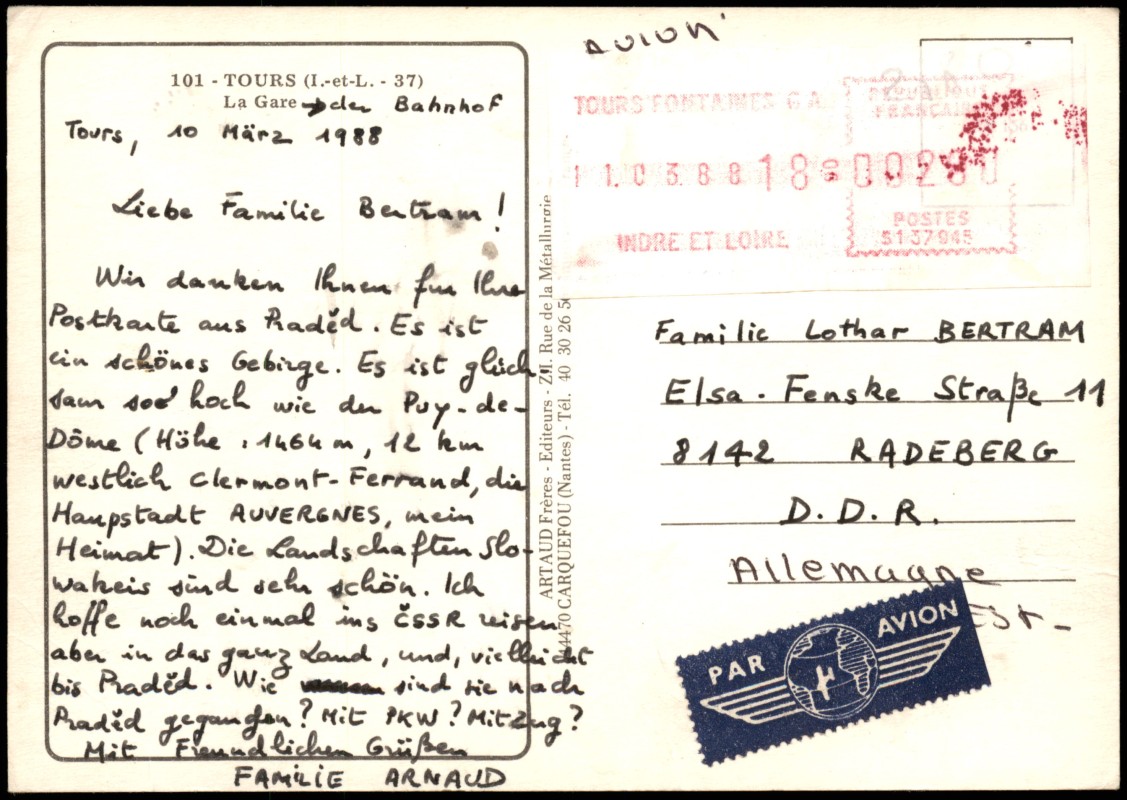 101 - TOURS (I.-et-L. - 37)
La Gare → der Bahnhof
Tours, 10 März 1988
Liebe Familie Bertram !
Wir danken Ihnen fur Ihre
Postkarte aus Praděd. Es ist
ein schönes Gebirge. Es ist glüch-
sam hoch wie der Puy-de-
Dôme (Höhe : 1464 m, 12 km
westlich Clermont-Ferrand, die
Haupstadt AUVERGNES, mein
Heimat). Die Landschaften Slo-
wakeis sind sehr schön. Ich
hoffe noch einmal ins ČSSR reisen
aber in das ganz Land, und, vielleicht
bis Praděd. Wie sind sie nach
Praděd gegangen ? Mit PKW ? Mit Zug ?
Mit Freundlichen Grüßen
FAMILIE ARNAUD
ARTAUD Frères - Editeurs - Z.I. Rue de la Métallurgie
44470 CARQUEFOU (Nantes) - Tél. 40 30 26 5
AVION
TOURS FONTAINES G A
REPUBLIQUE
FRANCAISE
11.03.88 18 00280
POSTES
INDRE ET LOIRE
S137945
Familie Lothar BERTRAM
Elsa-Fenske Straße 11
8142 RADEBERG
D.D.R.
Allemagne
EST-
PAR AVION